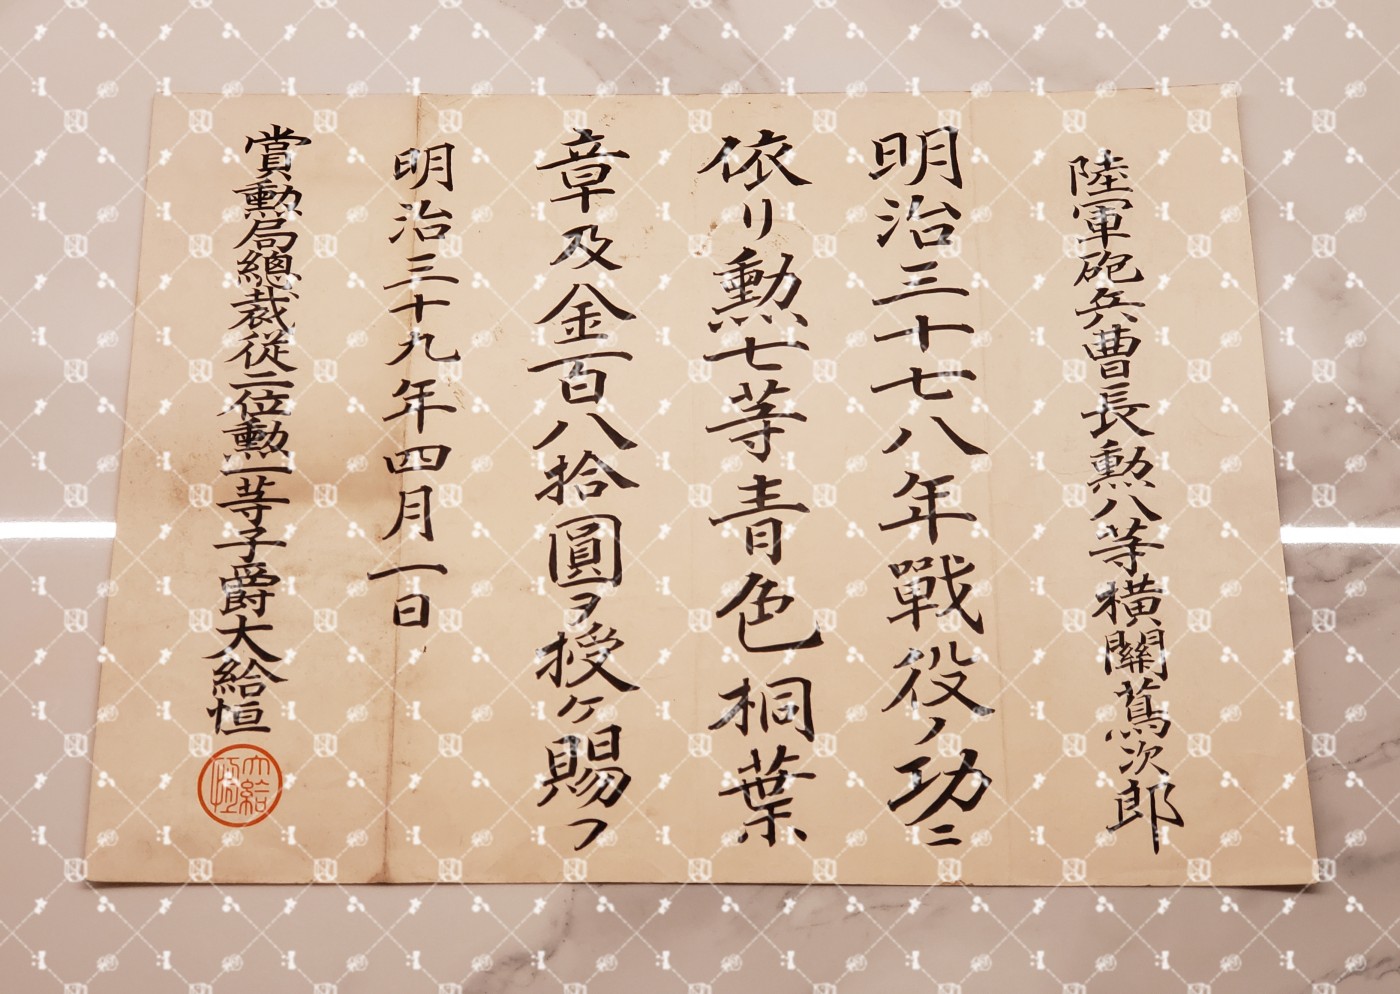 陸軍砲兵曹長勲八等横關蔦次郎
明治三十七八年戰役ノ功ニ
依リ勲七等青色桐葉
章及金百八拾圓ヲ授ケ賜フ
明治三十九年四月一日
賞勲局總裁從二位勲一等子爵大給恒
大給恒